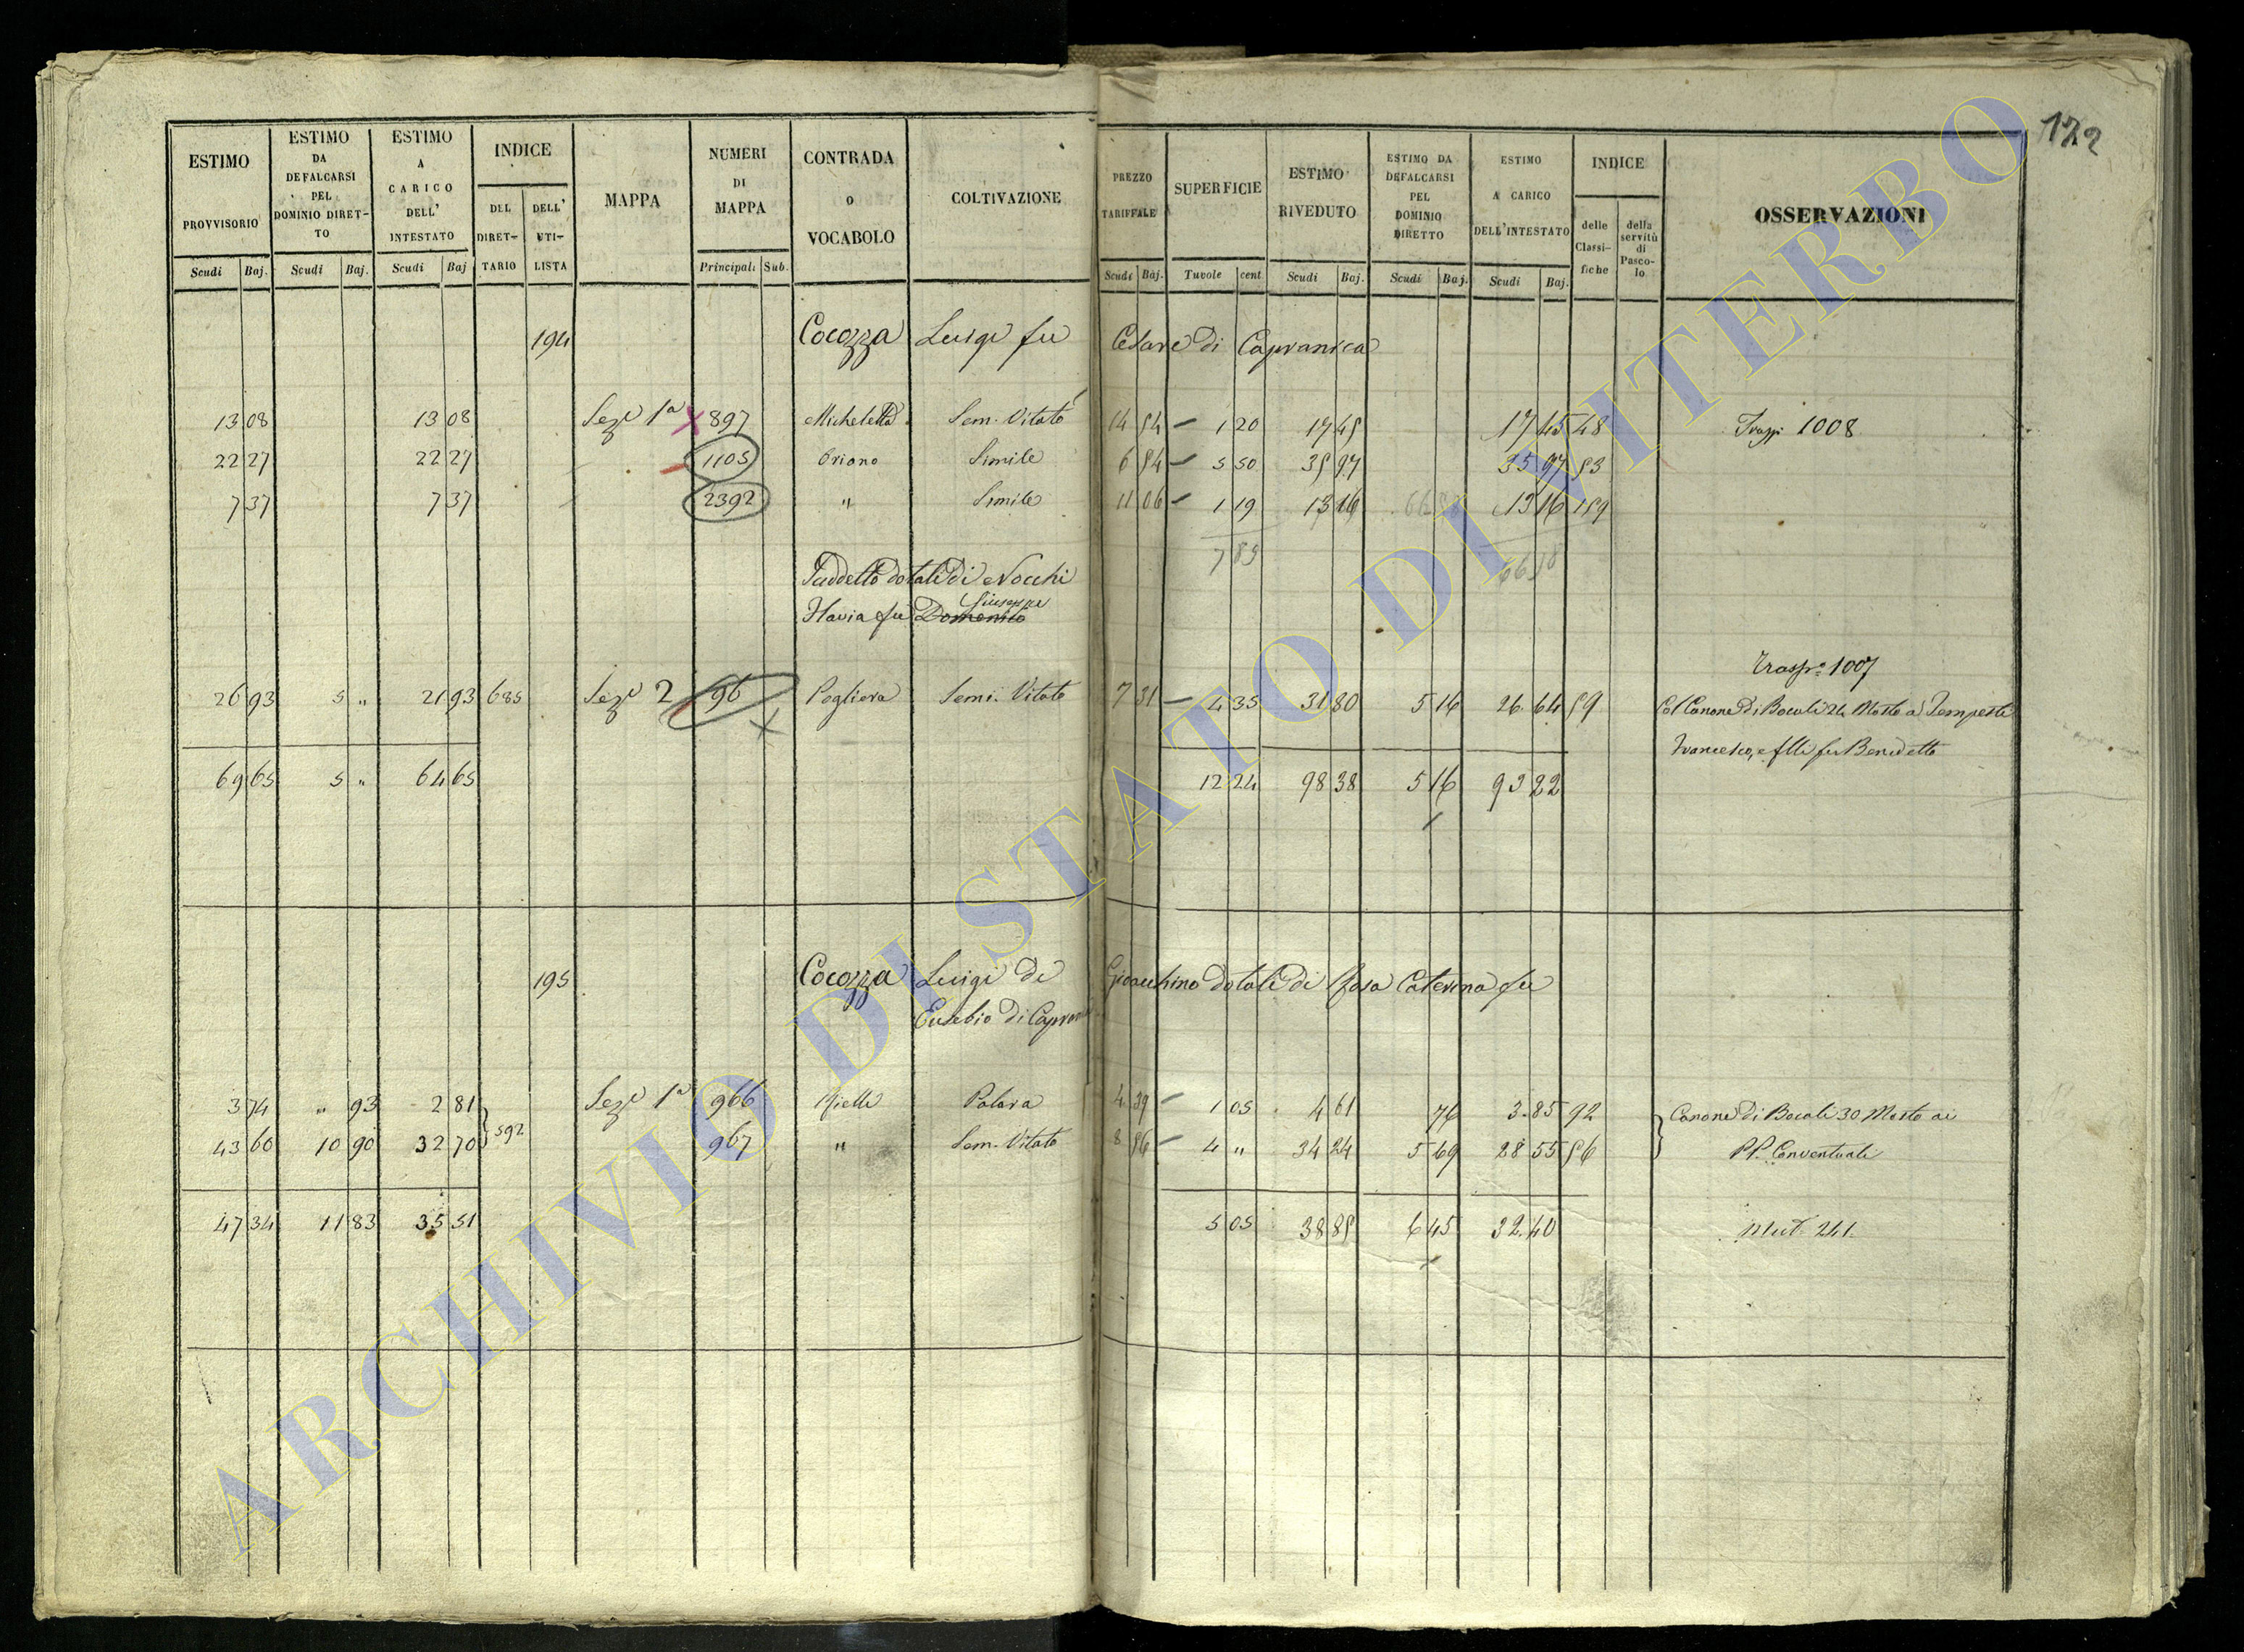 172
ESTIMO PROVVISORIO
Scudi Baj.
ESTIMO DA DEFALCARSI PEL DOMINIO DIRET-TO
Scudi Baj.
ESTIMO A CARICO DELL' INTESTATO
Scudi Baj
INDICE
DEL DIRET-TARIO
DELL' UTI-LISTA
MAPPA
NUMERI DI MAPPA
Principali Sub.
CONTRADA o VOCABOLO
COLTIVAZIONE
PREZZO TARIFFALE
Scudi Baj.
SUPERFICIE
Tavole cent
ESTIMO RIVEDUTO
Scudi Baj.
ESTIMO DA DEFALCARSI PEL DOMINIO DIRETTO
Scudi Baj.
ESTIMO A CARICO DELL'INTESTATO
Scudi Baj.
INDICE
delle Classi-fiche
della servitù di Pasco-lo
OSSERVAZIONI
194 Cocozza Luigi fu Cesare di Capranica
13 08 13 08 Sez.e 1a 897 Sem. Vitato 14 54 1 20 17 45 17 45 48 1008
22 27 22 27 1105 Oriano Simile 6 54 5 50 35 97 35 97 53
7 37 7 37 2392 " Simile 11 06 1 19 13 16 13 16 159
7 89
66 58
Suddetto dotali di Nocchi
Giuseppe
Flavia fu Domenico
Trasp.o 1007
26 93 5 " 21 93 685 Sez.e 2 96 Pogliera Semi. Vitato 7 31 4 35 31 80 5 16 26 64 59 Col Canone di Bocali 24 Mosto a Tempesti
Francesco, e flli fu Benedetto
69 65 5 " 64 65 12 24 98 38 5 16 93 22
195 Cocozza Luigi di Gioacchino dotali di Rosa Caterina fu
Eusebio di Capranica
3 74 " 93 2 81 592 Sez.e 1a 966 Rielli 4 39 1 05 4 61 76 3 85 92 Canone di Bocali 30 Mosto ai
43 60 10 90 32 70 967 " Sem. Vitato 8 56 4 " 34 24 5 69 28 55 56 PP. Conventuali
47 34 11 83 35 51 5 05 38 85 6 45 32 40 Mut. 241.
ARCHIVIO DI STATO DI VITERBO